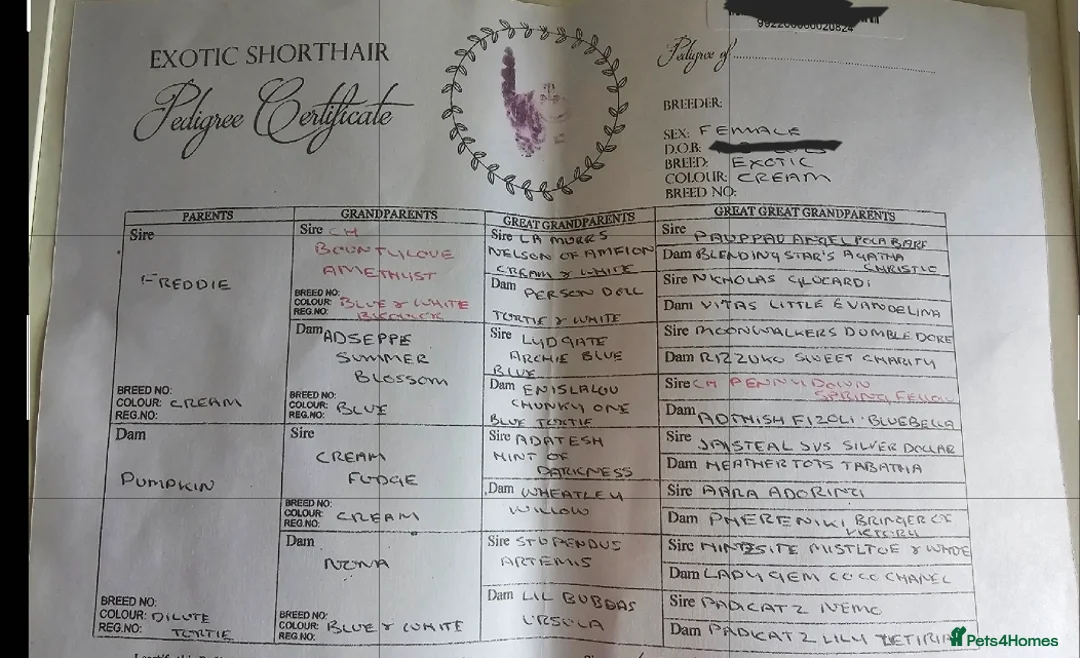 EXOTIC SHORTHAIR
Pedigree Certificate
Pedigree of
BREEDER:
SEX: FEMALE
D.O.B:
BREED: EXOTIC
COLOUR: CREAM
BREED NO:
PARENTS
GRANDPARENTS
GREAT GRANDPARENTS
GREAT GREAT GRANDPARENTS
Sire
FREDDIE
BREED NO:
COLOUR: CREAM
REG.NO:
Dam
PUMPKIN
BREED NO:
COLOUR: DILUTE
REG.NO: TORTIE
Sire CH
BOUNTYLOVE
AMETHYST
BREED NO:
COLOUR: BLUE & WHITE
REG.NO:
Dam ADSEPPE
SUMMER
BLOSSOM
BREED NO:
COLOUR: BLUE
REG.NO:
Sire
CREAM
FUDGE
BREED NO:
COLOUR: CREAM
REG.NO:
Dam
NONA
BREED NO:
COLOUR: BLUE & WHITE
REG.NO:
Sire LA MURRS
NELSON OF AMFION
CREAM & WHITE
Dam PERSON DOLL
TORTIE & WHITE
Sire LYDGATE
ARCHIE BLUE
BLUE
Dam ENISLALOU
CHUNKY ONE
BLUE TORTIE
Sire ADATESH
HINT OF
DARKNESS
Dam WHEATLEY
WILLOW
Sire STUPENDUS
ARTEMIS
Dam LIL BUBBAS
URSULA
Sire PAUPPAU ANGEL POLA BARE
Dam BLENDING STAR'S AGATHA
CHRISTIE
Sire NICHOLAS GLOCARDI
Dam VITAS LITTLE EVANDELINA
Sire MOONWALKERS DUMBLEDORE
Dam RIZZUKO SWEET CHARITY
Sire CH PENNYDOWN
SPRING FELLOW
Dam ADTHISH FIZOLI BLUEBELLA
Sire JAISTEAL SVS SILVER DOLLAR
Dam HEATHERTOTS TABATHA
Sire AARA ADORINTI
Dam PHERENIKI BRINGER OF
VICTORY
Sire MISTLTOE & WADE
Dam LADYGEM COCO CHANEL
Sire PADICATZ NEMO
Dam PADICATZ LILLY
Pets4Homes